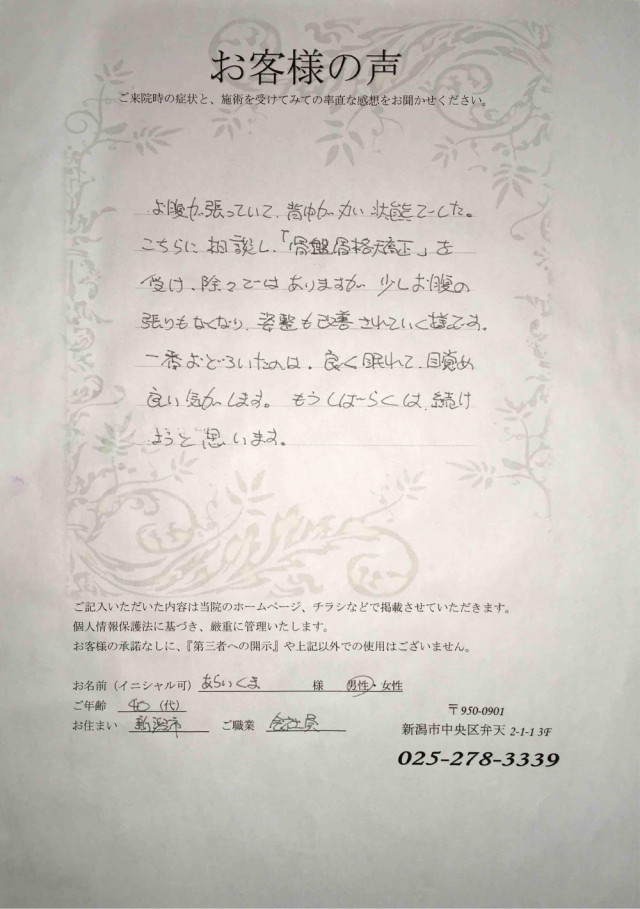 お客様の声
ご来院時の症状と、施術を受けてみての率直な感想をお聞かせください。
お腹が張っていて、背中が丸い状態でした。
こちらに相談し、「骨盤骨格矯正」を
受け、除々ではありますが少しお腹の
張りもなくなり、姿整も改善されていく様です。
一番おどろいたのは、良く眠れて、目覚め
良い気がします。もうしばらくは、続け
ようと思います。
ご記入いただいた内容は当院のホームページ、チラシなどで掲載させていただきます。
個人情報保護法に基づき、厳重に管理いたします。
お客様の承諾なしに、『第三者への開示』や上記以外での使用はございません。
お名前（イニシャル可）あらいくま 様 男性・女性
ご年齢 40（代）
お住まい 新潟市 ご職業 会社員
〒950-0901
新潟市中央区弁天 2-1-1 3F
025-278-3339